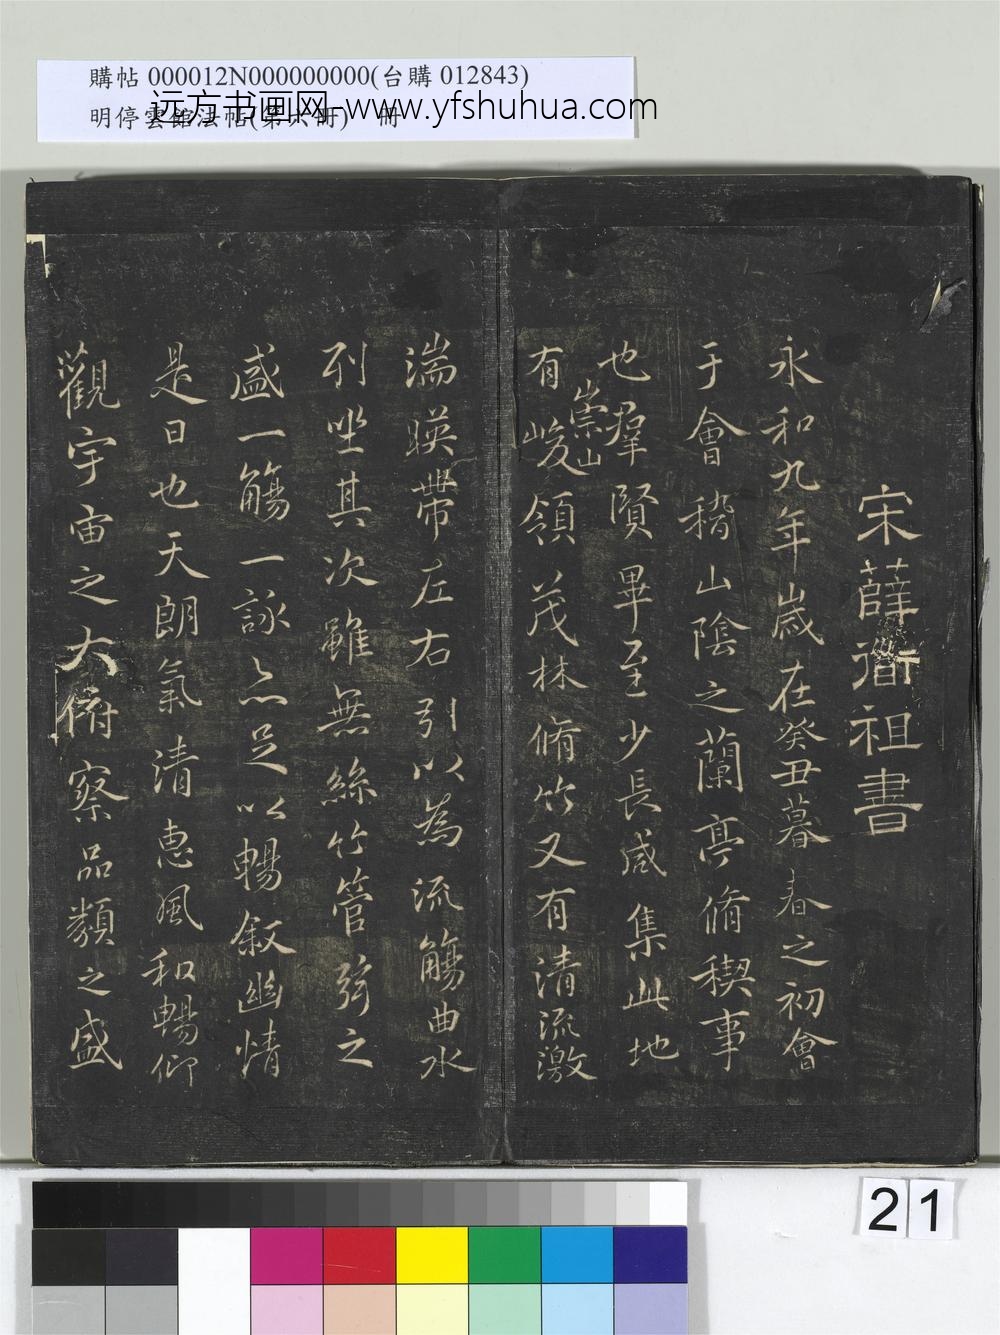 購帖 000012N000000000(台購 012843)
明停雲館法帖(第六冊) 冊
远方书画网-www.yfshuhua.com
宋薛道祖書
永和九年歲在癸丑暮春之初會
于會稽山陰之蘭亭脩稧事
也羣賢畢至少長咸集此地
有崇山峻領茂林脩竹又有清流激
湍暎帶左右引以為流觴曲水
列坐其次雖無絲竹管弦之
盛一觴一詠亦足以暢叙幽情
是日也天朗氣清惠風和暢仰
觀宇宙之大俯察品類之盛
21